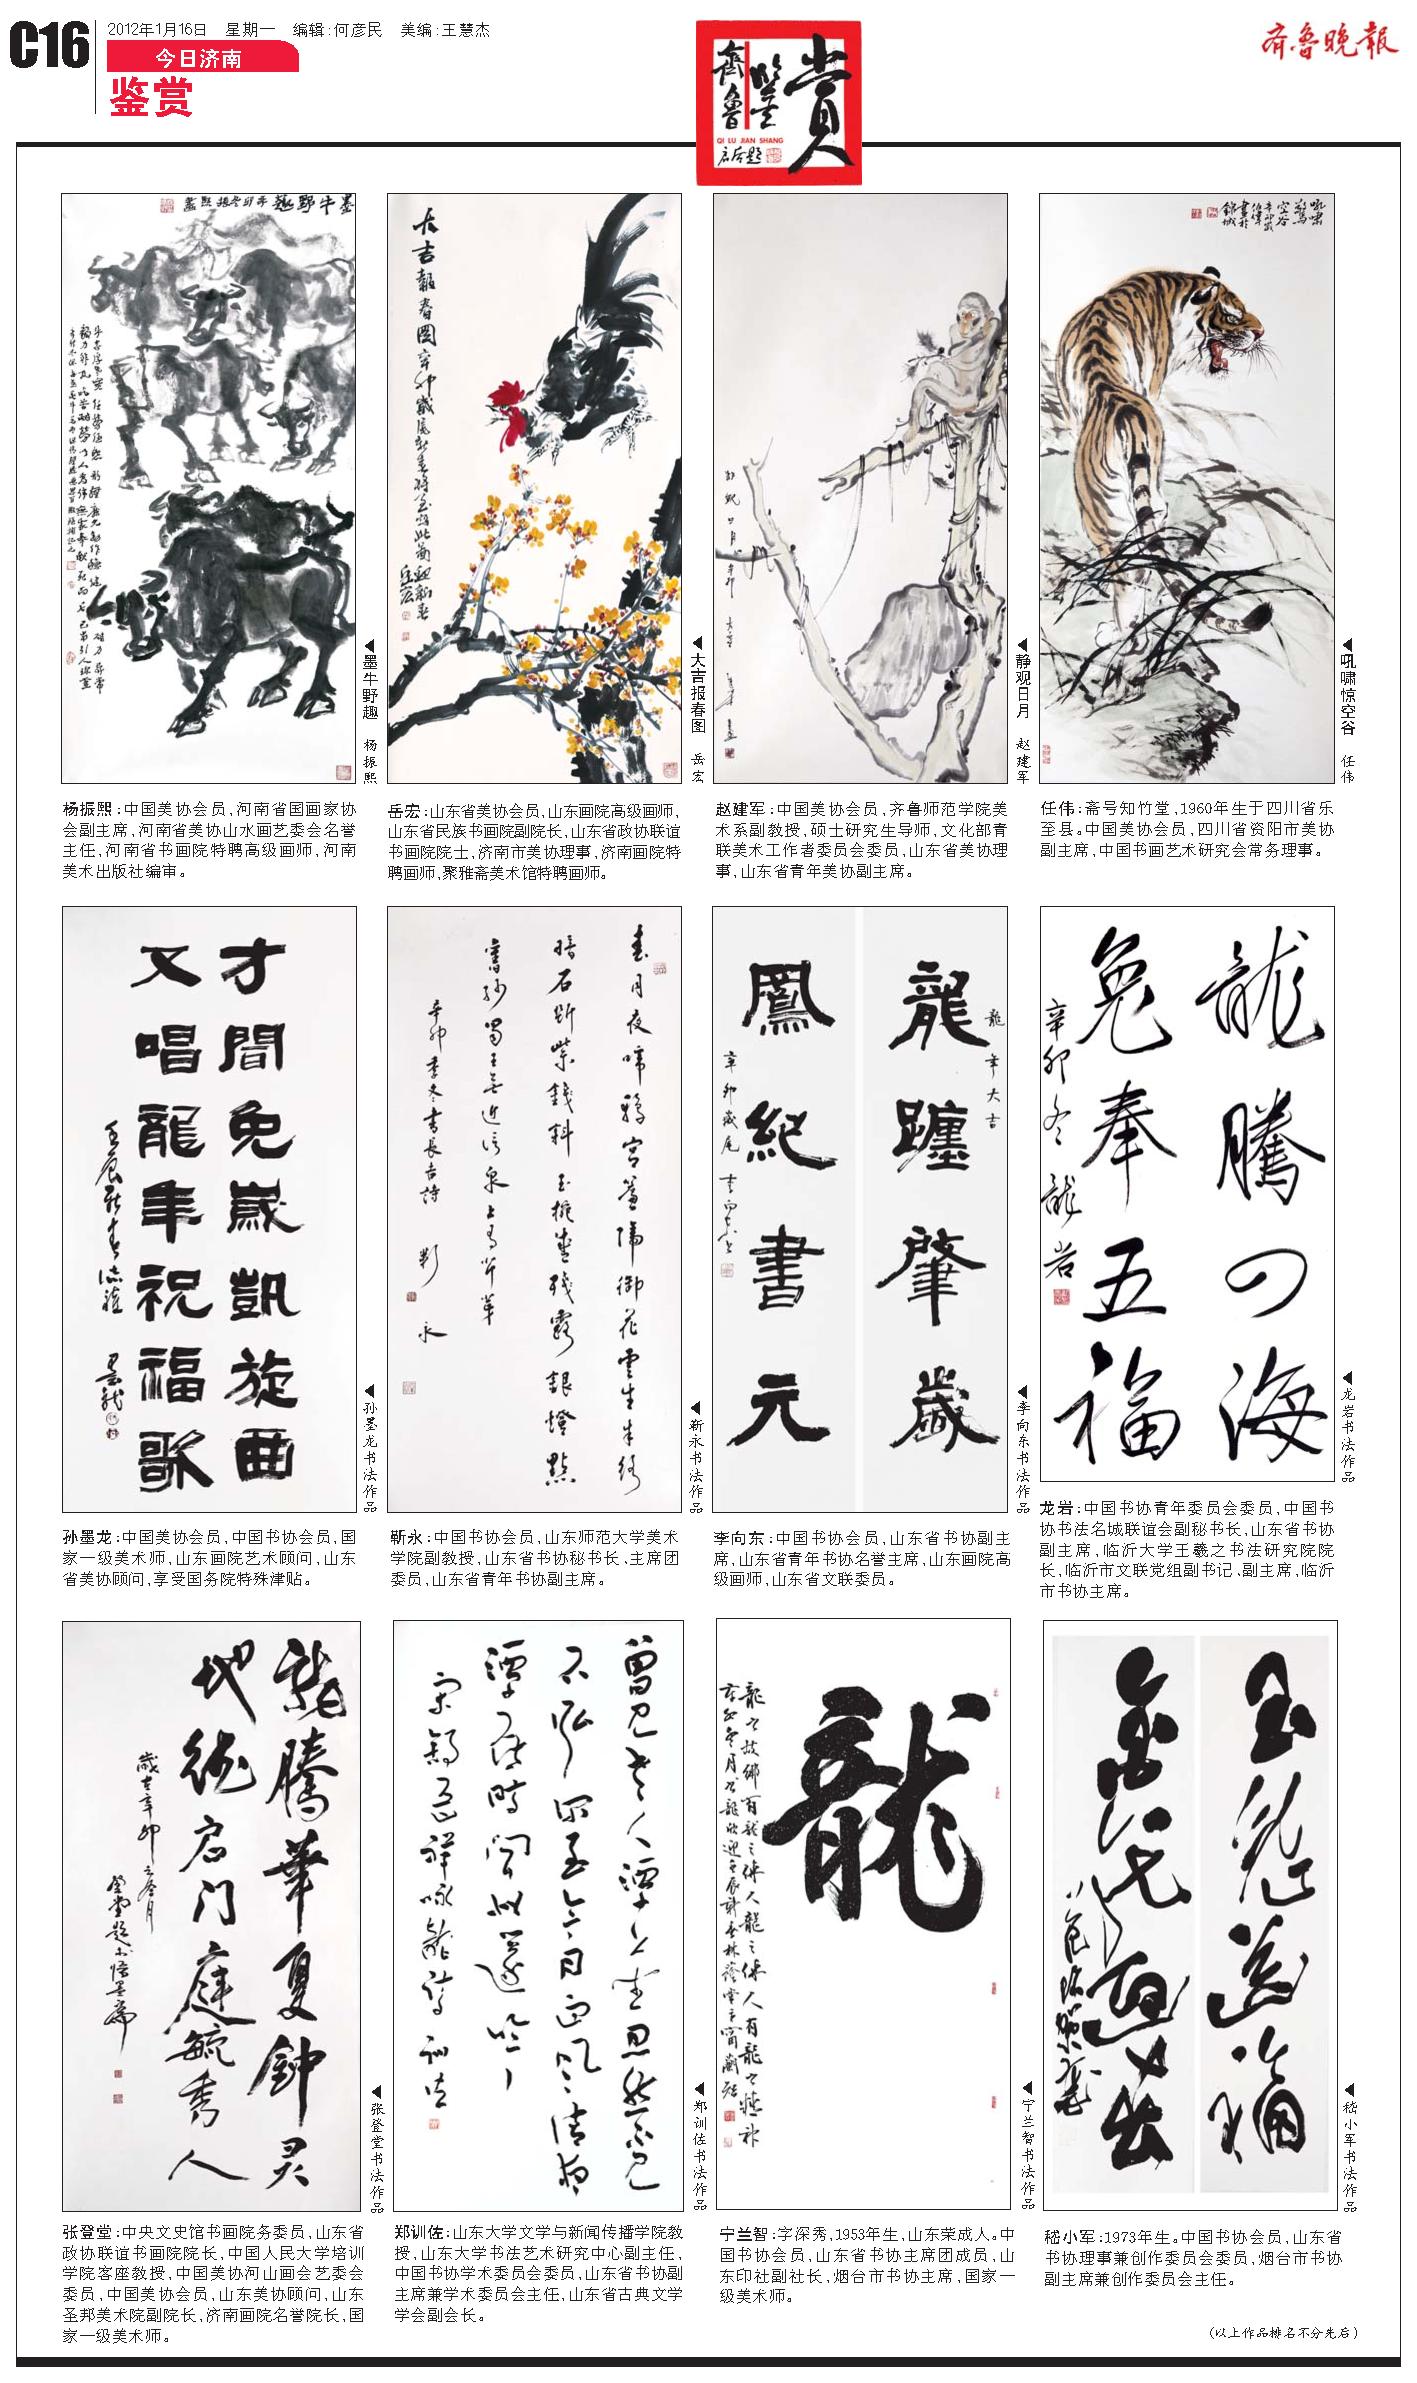 C16
2012年1月16日 星期一 编辑:何彦民 美编:王慧杰
今日济南
鉴赏
齊魯
鑒
賞
QI LU JIAN SHANG
齐鲁晚报
墨牛野趣
大吉報春圖
吼嘯驚空谷
◀墨牛野趣 杨振熙
◀大吉报春图 岳宏
◀静观日月 赵建军
◀吼啸惊空谷 任伟
杨振熙:中国美协会员,河南省国画家协
会副主席,河南省美协山水画艺委会名誉
主任,河南省书画院特聘高级画师,河南
美术出版社编审。
岳宏:山东省美协会员,山东画院高级画师,
山东省民族书画院副院长,山东省政协联谊
书画院院士,济南市美协理事,济南画院特
聘画师,聚雅斋美术馆特聘画师。
赵建军:中国美协会员,齐鲁师范学院美
术系副教授,硕士研究生导师,文化部青
联美术工作者委员会委员,山东省美协理
事,山东省青年美协副主席。
任伟:斋号知竹堂,1960年生于四川省乐
至县。中国美协会员,四川省资阳市美协
副主席,中国书画艺术研究会常务理事。
才聞兔歲凱旋曲
又唱龍年祝福歌
春月夜啼鴉宮簾隔御花雲生朱絡
暗石斷紫錢斜玉椀盛殘露銀燈點
舊紗蜀王無近信泉上有芹芽
辛卯季冬書長吉詩 靳永
龍年大吉
龍躔肇歲
鳳紀書元
辛卯歲尾 李向东
龍騰四海
兔奉五福
辛卯冬 龍岩
◀孙墨龙书法作品
◀靳永书法作品
◀李向东书法作品
◀龙岩书法作品
孙墨龙:中国美协会员,中国书协会员,国
家一级美术师,山东画院艺术顾问,山东
省美协顾问,享受国务院特殊津贴。
靳永:中国书协会员,山东师范大学美术
学院副教授,山东省书协秘书长、主席团
委员,山东省青年书协副主席。
李向东:中国书协会员,山东省书协副主
席,山东省青年书协名誉主席,山东画院高
级画师,山东省文联委员。
龙岩:中国书协青年委员会委员,中国书
协书法名城联谊会副秘书长,山东省书协
副主席,临沂大学王羲之书法研究院院
长,临沂市文联党组副书记、副主席,临沂
市书协主席。
龍騰華夏鍾灵
地德启门庭毓秀人
龍
◀张登堂书法作品
◀郑训佐书法作品
◀宁兰智书法作品
◀嵇小军书法作品
张登堂:中央文史馆书画院院务委员,山东省
政协联谊书画院院长,中国人民大学培训
学院客座教授,中国美协河山画会艺委会
委员,中国美协会员,山东美协顾问,山东
圣邦美术院副院长,济南画院名誉院长,国
家一级美术师。
郑训佐:山东大学文学与新闻传播学院教
授,山东大学书法艺术研究中心副主任,
中国书协学术委员会委员,山东省书协副
主席兼学术委员会主任,山东省古典文学
学会副会长。
宁兰智:字深秀,1953年生,山东荣成人。中
国书协会员,山东省书协主席团成员,山
东印社副社长,烟台市书协主席,国家一
级美术师。
嵇小军:1973年生。中国书协会员,山东省
书协理事兼创作委员会委员,烟台市书协
副主席兼创作委员会主任。
(以上作品排名不分先后)